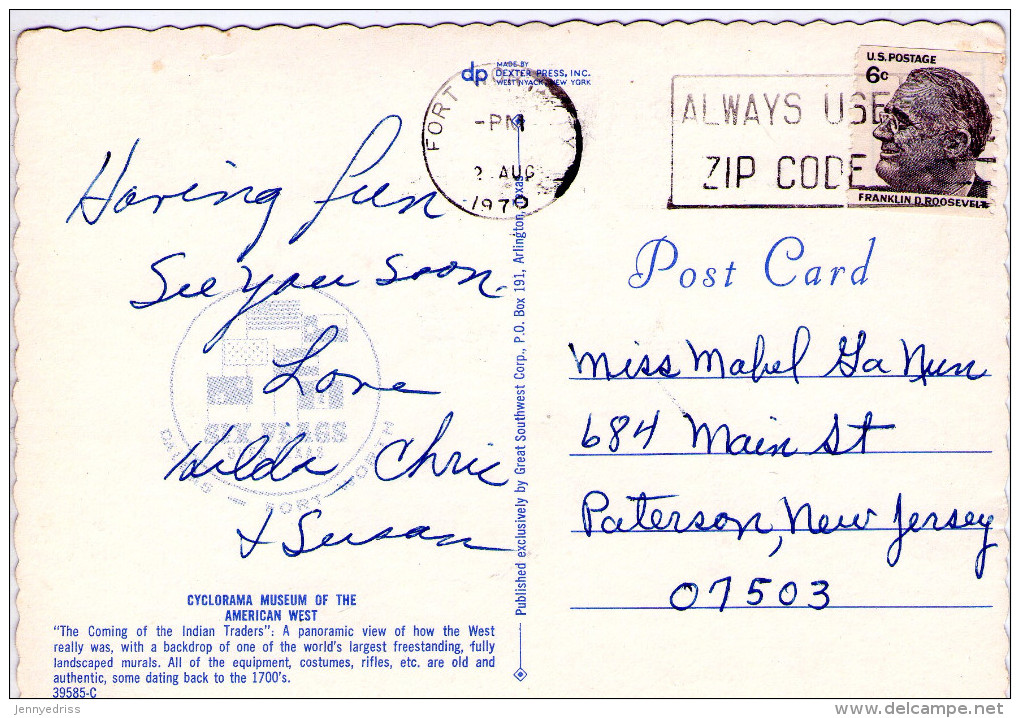 dp MADE BY
DEXTER PRESS, INC.
WEST NYACK, NEW YORK
FORT
-PM
2 AUG
1970
ALWAYS USE
ZIP CODE
U.S. POSTAGE
6c
FRANKLIN D. ROOSEVELT
Having fun
See you soon.
Love
Hilda, Chris
& Susan
SIX FLAGS
DALLAS — FORT WORTH
Post Card
Miss Mabel Ga Nun
684 Main St
Paterson, New Jersey
07503
Published exclusively by Great Southwest Corp., P.O. Box 191, Arlington, Texas
CYCLORAMA MUSEUM OF THE
AMERICAN WEST
"The Coming of the Indian Traders": A panoramic view of how the West
really was, with a backdrop of one of the world's largest freestanding, fully
landscaped murals. All of the equipment, costumes, rifles, etc. are old and
authentic, some dating back to the 1700's.
39585-C
jennydriss
delcampe.net